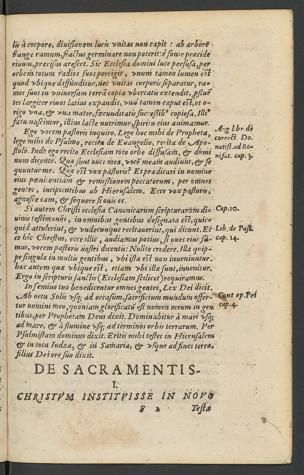 lis à corpore, diuisionem lucis vnitas non capit: ab arbore
frange ramum, fractus germinare non poterit: è fonte præcide
riuum, præcisus arescet. Sic Ecclesia domini luce perfusa, per
orbem totum radios suos porrigit, vnum tamen lumen est
quod vbique diffunditur, nec vnitas corporis separatur, ra-
mos suos in vniuersam terrā copia vbertatis extendit, profluē
tes largiter riuos latius expandit, vnū tamen caput est, et o-
rigo vna, & vna mater, fæcunditatis successib' copiosa, Illi'
fœtu nascimur, illius lacte nutrimur, spiritu eius animamur.
Ego vocem pastoris inquiro. Lege hoc mihi de Propheta,
lege mihi de Psalmo, recita de Euangelio, recita de Apo-
stolo. Inde ego recito Ecclesiam toto orbe diffusam, & domi
num dicente. Quæ sunt oues meæ, vocē meam audiunt, & se
quuntur me. Quæ est vox pastoris? Et prædicari in nomine
eius pœnitentiam & remissionem peccatorum, per omnes
gentes, incipientibus ab Hierusalem. Ecce vox pastoris,
agnosce eam, & sequere si ouis es.
Si autem Christi ecclesia Canonicarum scripturarum di-
uinis testimonijs, in omnibus gentibus designata est, quic-
quid attulerint, & vndecunque recitauerint, qui dicunt, Ec
ce hic Christus, ecce illic, audiamus potius, si oues eius su-
mus, vocem pastoris nostri dicentis: Nolite credere. Illæ quip-
pe singulæ in multis gentibus, vbi ista est non inueniuntur.
hæc autem quæ vbique est, etiam vbi illæ sunt, inuenitur,
Ergo in scripturis sanctis (Ecclesiam scilicet) requiramus.
In semine tuo benedicentur omnes gentes, Lex Dei dicit.
Ab ortu Solis vsq; ad occasum, Sacrificium mundum offer-
tur nomini meo, quoniam glorificatū est nomen meum in gen
tibus, per Prophetam Deus dixit. Dominabitur à mari vsq;
ad mare, & à flumine vsq; ad terminos orbis terrarum. Per
Psalmistam dominus dixit. Eritis mihi testes in Hierusalem
& in tota Iudæa, & in Samaria, & vsque ad fines terræ,
filius Dei ore suo dixit.
Aug. Lbr. de
correct. Do-
natist. ad Bo-
nifac. cap. 3.
Cap. 10.
Lib. de Past.
cap. 14.
Cont ep. Pet
cap. 4.
DE SACRAMENTIS-
I.
CHRISTVM INSTITVISSE IN NOVO
F 2 Testa